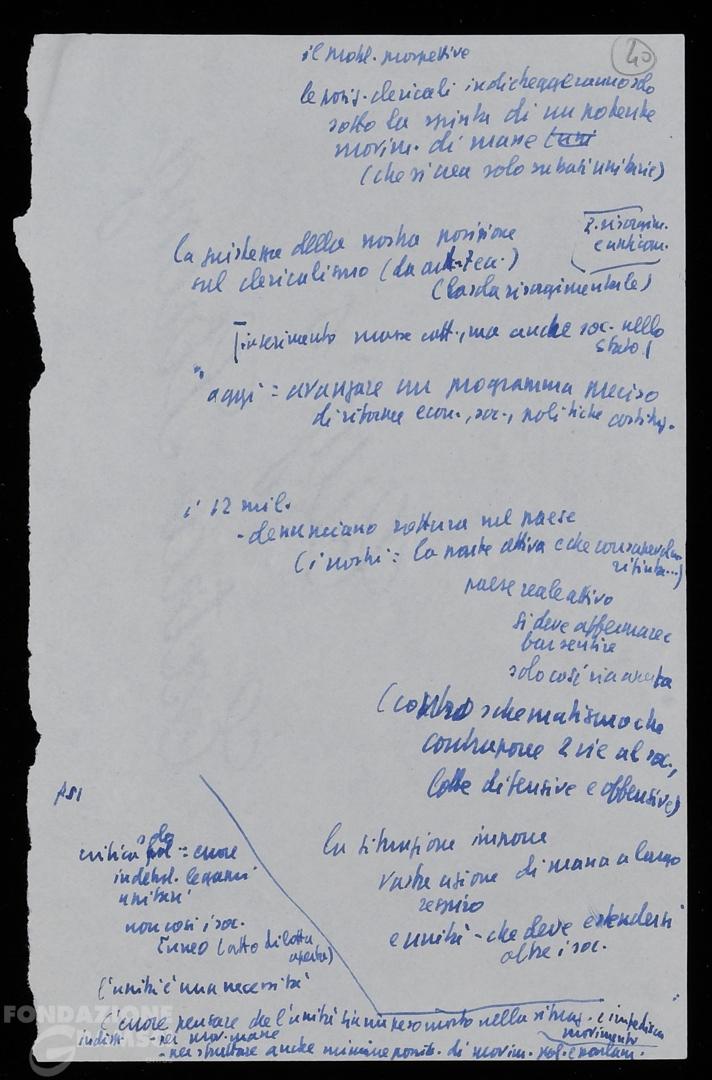 40
il probl. prospettive
le posiz. clericali indietreggeranno solo
sotto la spinta di un potente
movim. di masse
(che si crea solo su basi unitarie)
2. risorgim.
e anticom.
la giustezza della nostra posizione
sul clericalismo (da art. 7 ecc.)
(laesla risorgimentale)
inserimento masse catt., ma anche soc. nello
stato
oggi = avanzare un programma preciso
di riforme econ., soc., politiche costituz.
i 12 mil.
- denunciano rottura nel paese
(i nostri = la parte attiva e che
rifiuta...)
paese reale attivo
si deve affermare e
far sentire
solo così si avanza
(contro schematismo che
contrappone 2 vie al soc.,
lotte difensive e offensive)
PSI
solo
critica pol = errore
indebol. legami
unitari
non così i soc.
(atto di lotta
aperta)
l'unità è una necessità
la situazione impone
vasta azione di massa a largo
respiro
e unità - che deve estendersi
oltre i soc.
errore pensare che l'unità sia un peso morto nella situaz. e impedisca
movimento
indisp. - per mov. masse
- per sfruttare anche minime possib. di movim. pol. e parlam.
FONDAZIONE
GRAMSCI